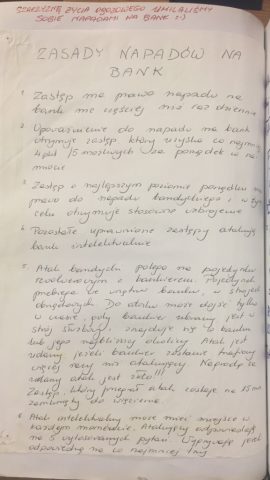 SZARZYZNĘ ŻYCIA OBOZOWEGO UMILALIŚMY
SOBIE NAPADAMI NA BANK :-)
ZASADY NAPADÓW NA
BANK
1. Zastęp ma prawo napadu na
bank nie częściej niż raz dziennie
2. Upoważnienie do napadu na bank
otrzymuje zastęp, który uzyska co najmniej
4 pkt /5 możliwych za porządek w
namiocie
3. Zastęp o najlepszym poziomie porządku ma
prawo do napadu bandyckiego i w tym
celu otrzymuje stosowne uzbrojenie
4. Pozostałe uprawnione zastępy atakują
bank intelektualnie
5. Atak bandycki polega na pojedynku
rewolwerowym z bankierem. Pojedynek
przebiega we wnętrzu banku, w strojach
obrzędowych. Do ataku może dojść tylko
w czasie, gdy bankier ubrany jest w
strój służbowy, znajduje się w banku
lub jego najbliższej okolicy. Atak jest
udany, jeżeli bankier zostanie trafiony
więcej razy niż atakujący. Nagrodą za
udany atak jest złoto!!!
Zastęp, który przegrał atak zostaje na 15 min
zamknięty do więzienia.
6. Atak intelektualny może mieć miejsce w
każdym momencie. Atakujący odpowiadają
na 5 wylosowanych pytań. Wygrywają jeżeli
odpowiedzą na co najmniej trzy.